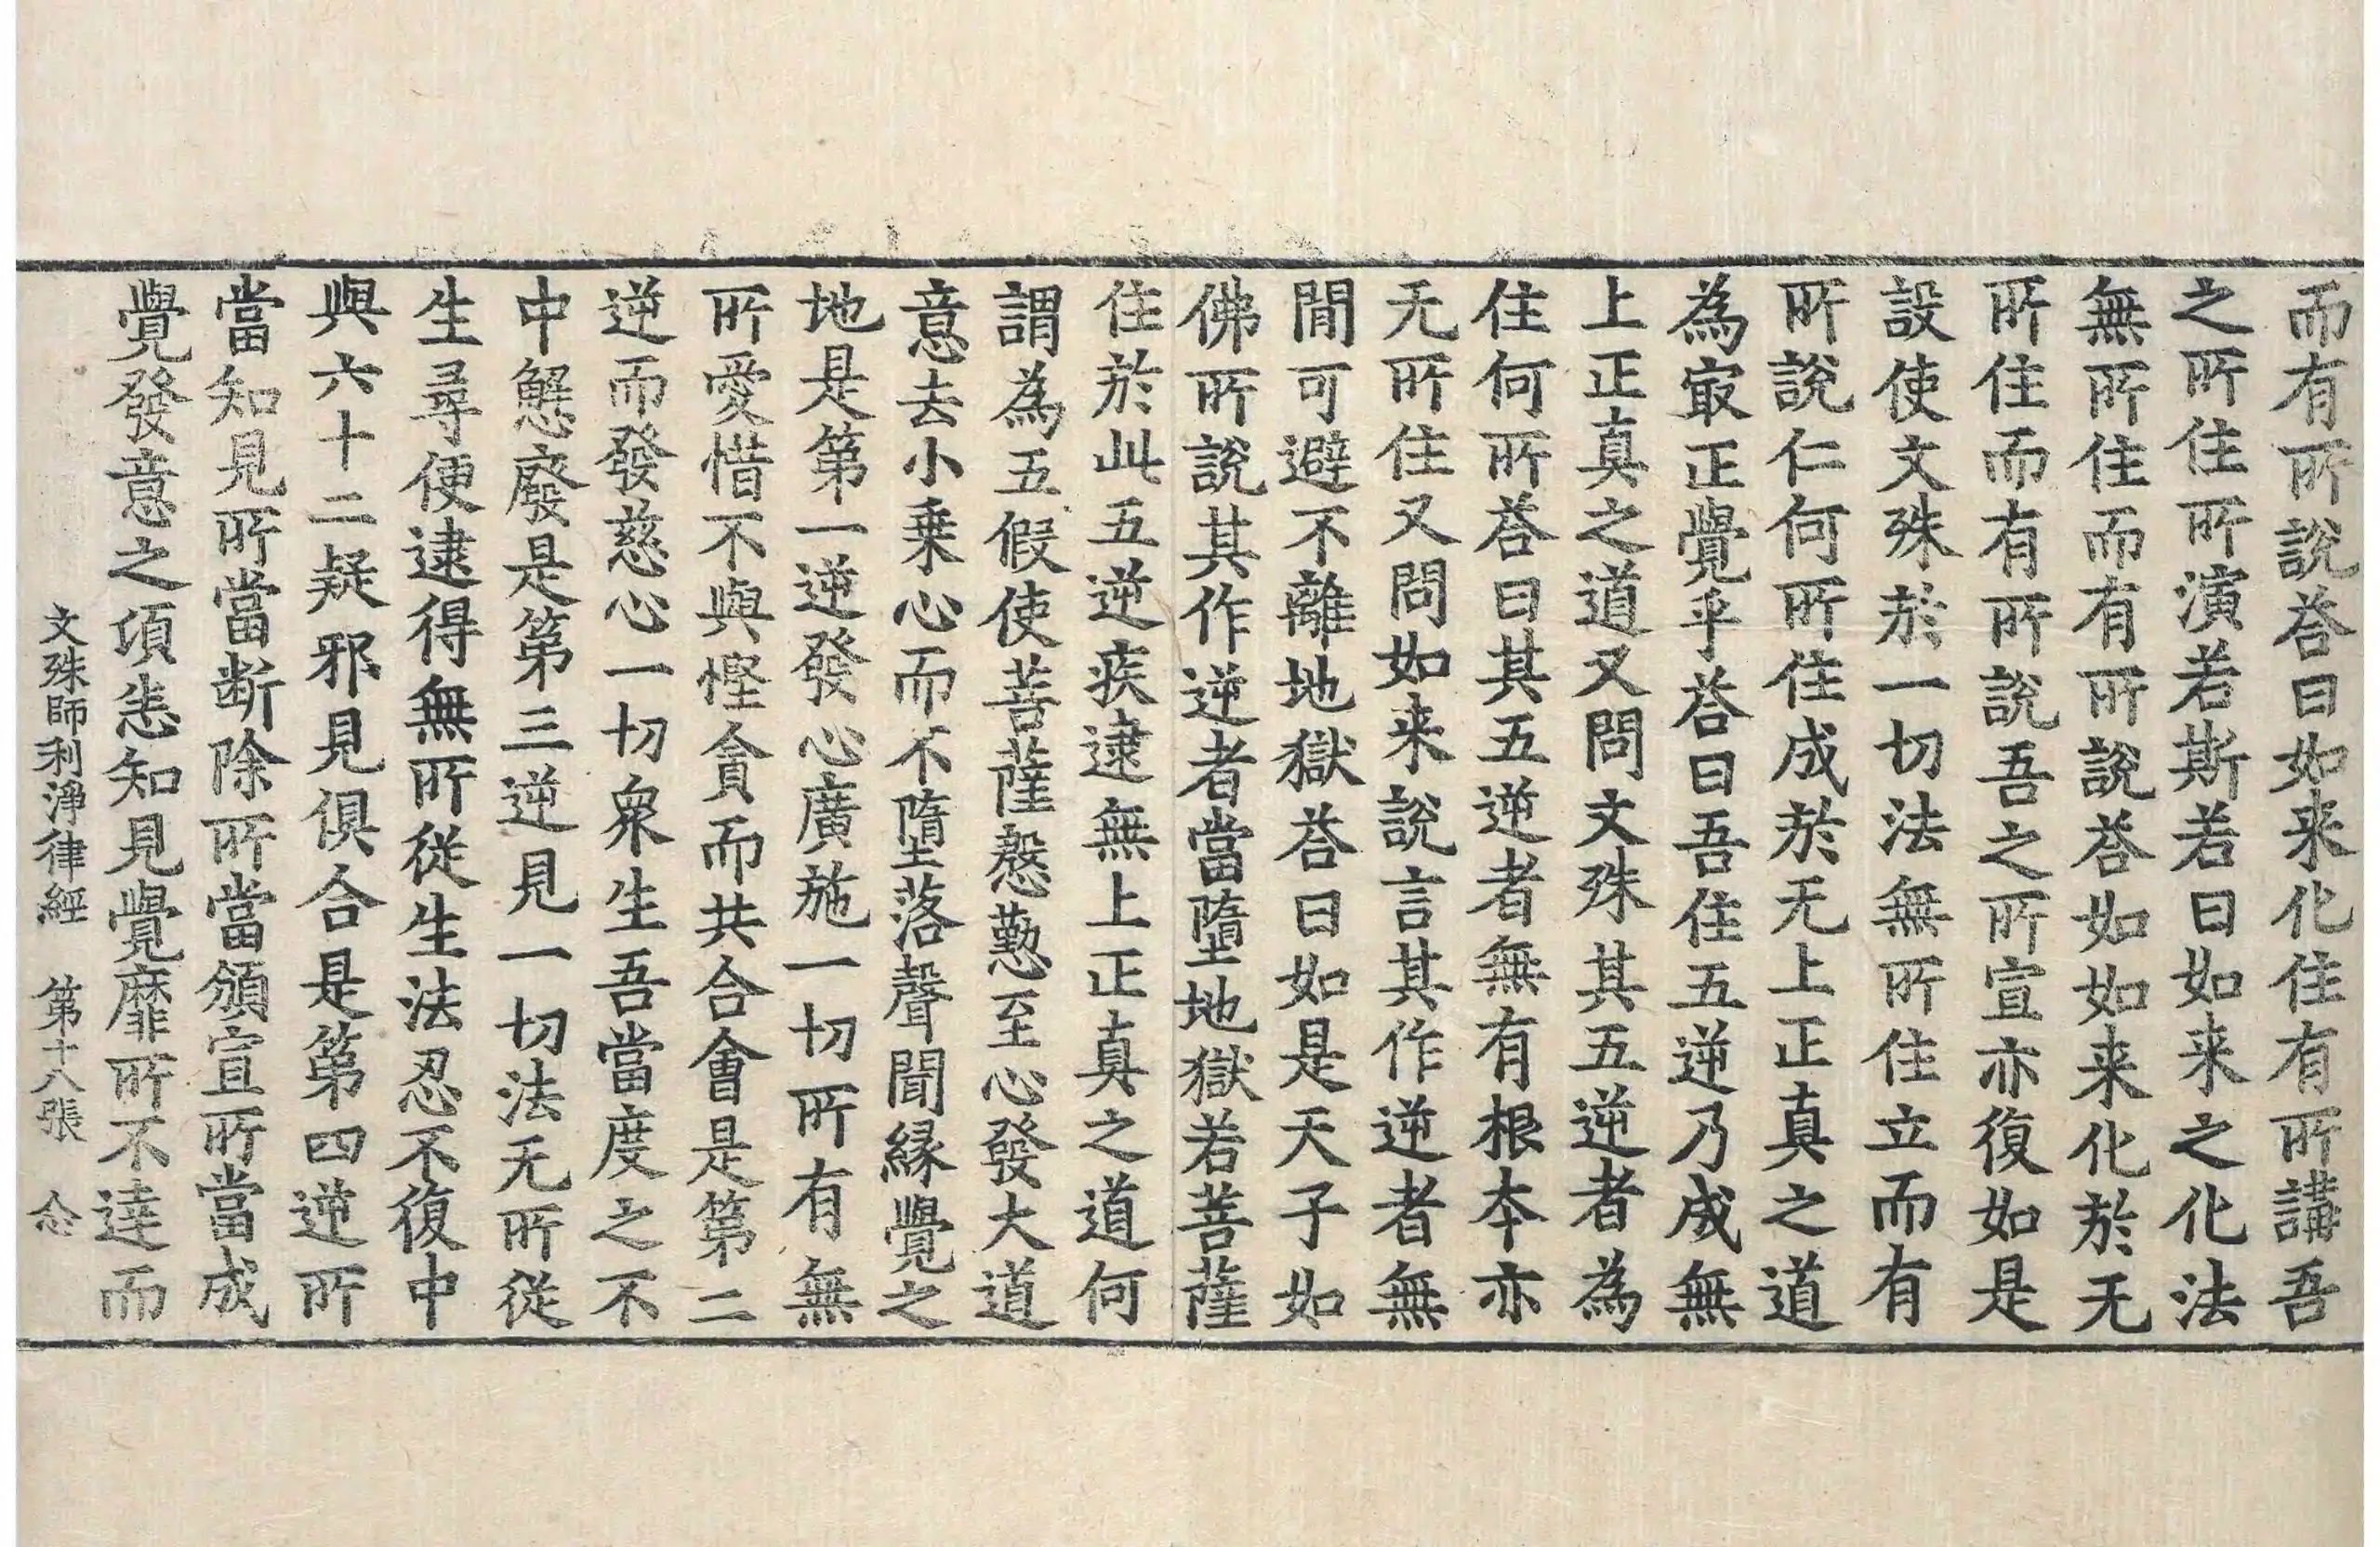 而有所說荅曰如来化住有所講吾
之所住所演若斯若曰如来之化法
無所住而有所說荅如如来化於无
所住而有所說吾之所宣亦復如是
設使文殊於一切法無所住立而有
所說仁何所住成於无上正真之道
為㝡正覺乎荅曰吾住五逆乃成無
上正真之道又問文殊其五逆者為
住何所荅曰其五逆者無有根本亦
无所住又問如来說言其作逆者無
閒可避不離地獄荅曰如是天子如
佛所說其作逆者當墮地獄若菩薩
住於此五逆疾逮無上正真之道何
謂為五假使菩薩慇懃至心發大道
意去小乗心而不墮落聲聞緣覺之
地是第一逆發心廣施一切所有無
所愛惜不與慳貪而共合會是第二
逆而發慈心一切衆生吾當度之不
中懈廢是第三逆見一切法无所從
生尋便逮得無所從生法忍不復中
與六十二疑邪見俱合是第四逆所
當知見所當断除所當頒宣所當成
覺發意之項悉知見覺靡所不達而
文殊師利淨律經　第十八張　念